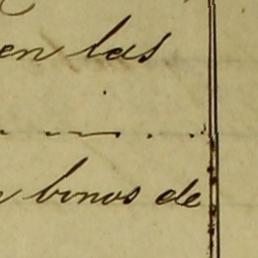 en las
binos de